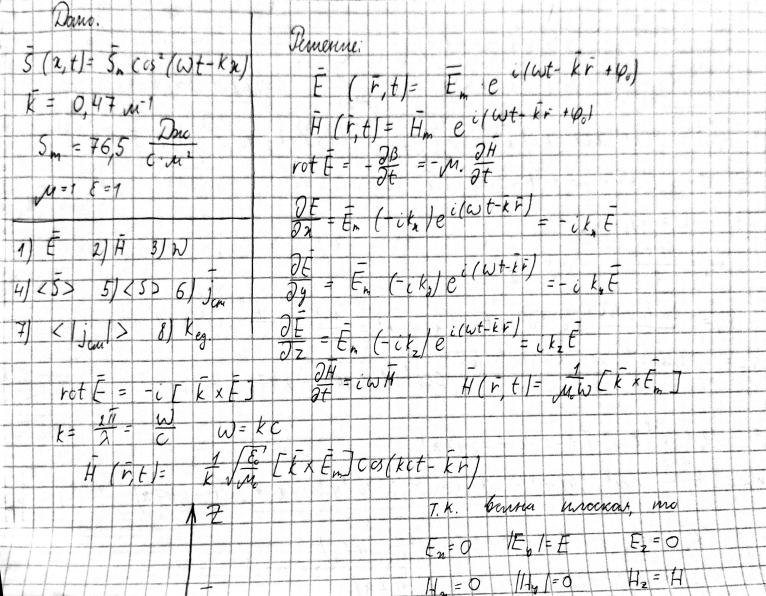 Дано:
S̄ (x,t) = S̄ₘ cos²(ωt - kx)
k̄ = 0,47 м⁻¹
Sₘ = 76,5 Дж/(с·м²)
μ=1 ε=1
1) Ē 2) H̄ 3) W
4) <S̄> 5) <S> 6) j̄см
7) <|j̄см|> 8) Kед.
Решение:
Ē (r̄,t) = Ēₘ · e^{i(ωt - k̄r̄ + φ₀)}
H̄ (r̄,t) = H̄ₘ e^{i(ωt - k̄r̄ + φ₀)}
rot Ē = -∂B/∂t = -μ₀ ∂H̄/∂t
∂E/∂x = Ēₘ (-ikₓ) e^{i(ωt - k̄r̄)} = -ikₓ Ē
∂Ē/∂y = Ēₘ (-ik_y) e^{i(ωt - k̄r̄)} = -i k_y Ē
∂Ē/∂z = Ēₘ (-ik_z) e^{i(ωt - k̄r̄)} = ik_z Ē
rot Ē = -i [k̄ × Ē] ∂H̄/∂t = iωH̄ H̄(r̄,t) = 1/(μ₀ω) [k̄ × Ēₘ]
k = 2π/λ = ω/c ω = kc
H̄ (r̄,t) = 1/k √(ε₀/μ₀) [k̄ × Ēₘ] cos(kct - k̄r̄)
Z
т.к. волна плоская, то
Eₓ = 0 |E_y| = E E_z = 0
Hₓ = 0 |H_y| = 0 H_z = H